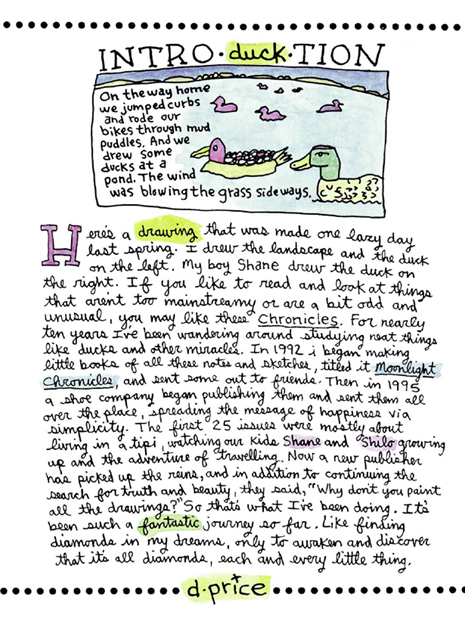 INTRO·duck·TION
On the way home
we jumped curbs
and rode our
bikes through mud
puddles. And we
drew some
ducks at a
pond. The wind
was blowing the grass sideways.
Here's a drawing that was made one lazy day
last spring. I drew the landscape and the duck
on the left. My boy Shane drew the duck on
the right. If you like to read and look at things
that aren't too mainstreamy or are a bit odd and
unusual, you may like these Chronicles. For nearly
ten years I've been wandering around studying neat things
like ducks and other miracles. In 1992 i began making
little books of all these notes and sketches, titled it Moonlight
Chronicles, and sent some out to friends. Then in 1995
a shoe company began publishing them and sent them all
over the place, spreading the message of happiness via
simplicity. The first 25 issues were mostly about
living in a tipi, watching our kids Shane and Shilo growing
up and the adventure of travelling. Now a new publisher
has picked up the reins, and in addition to continuing the
search for truth and beauty, they said, "Why don't you paint
all the drawings?" So thats what I've been doing. It's
been such a fantastic journey so far. Like finding
diamonds in my dreams, only to awaken and discover
that it's all diamonds, each and every little thing.
d·price